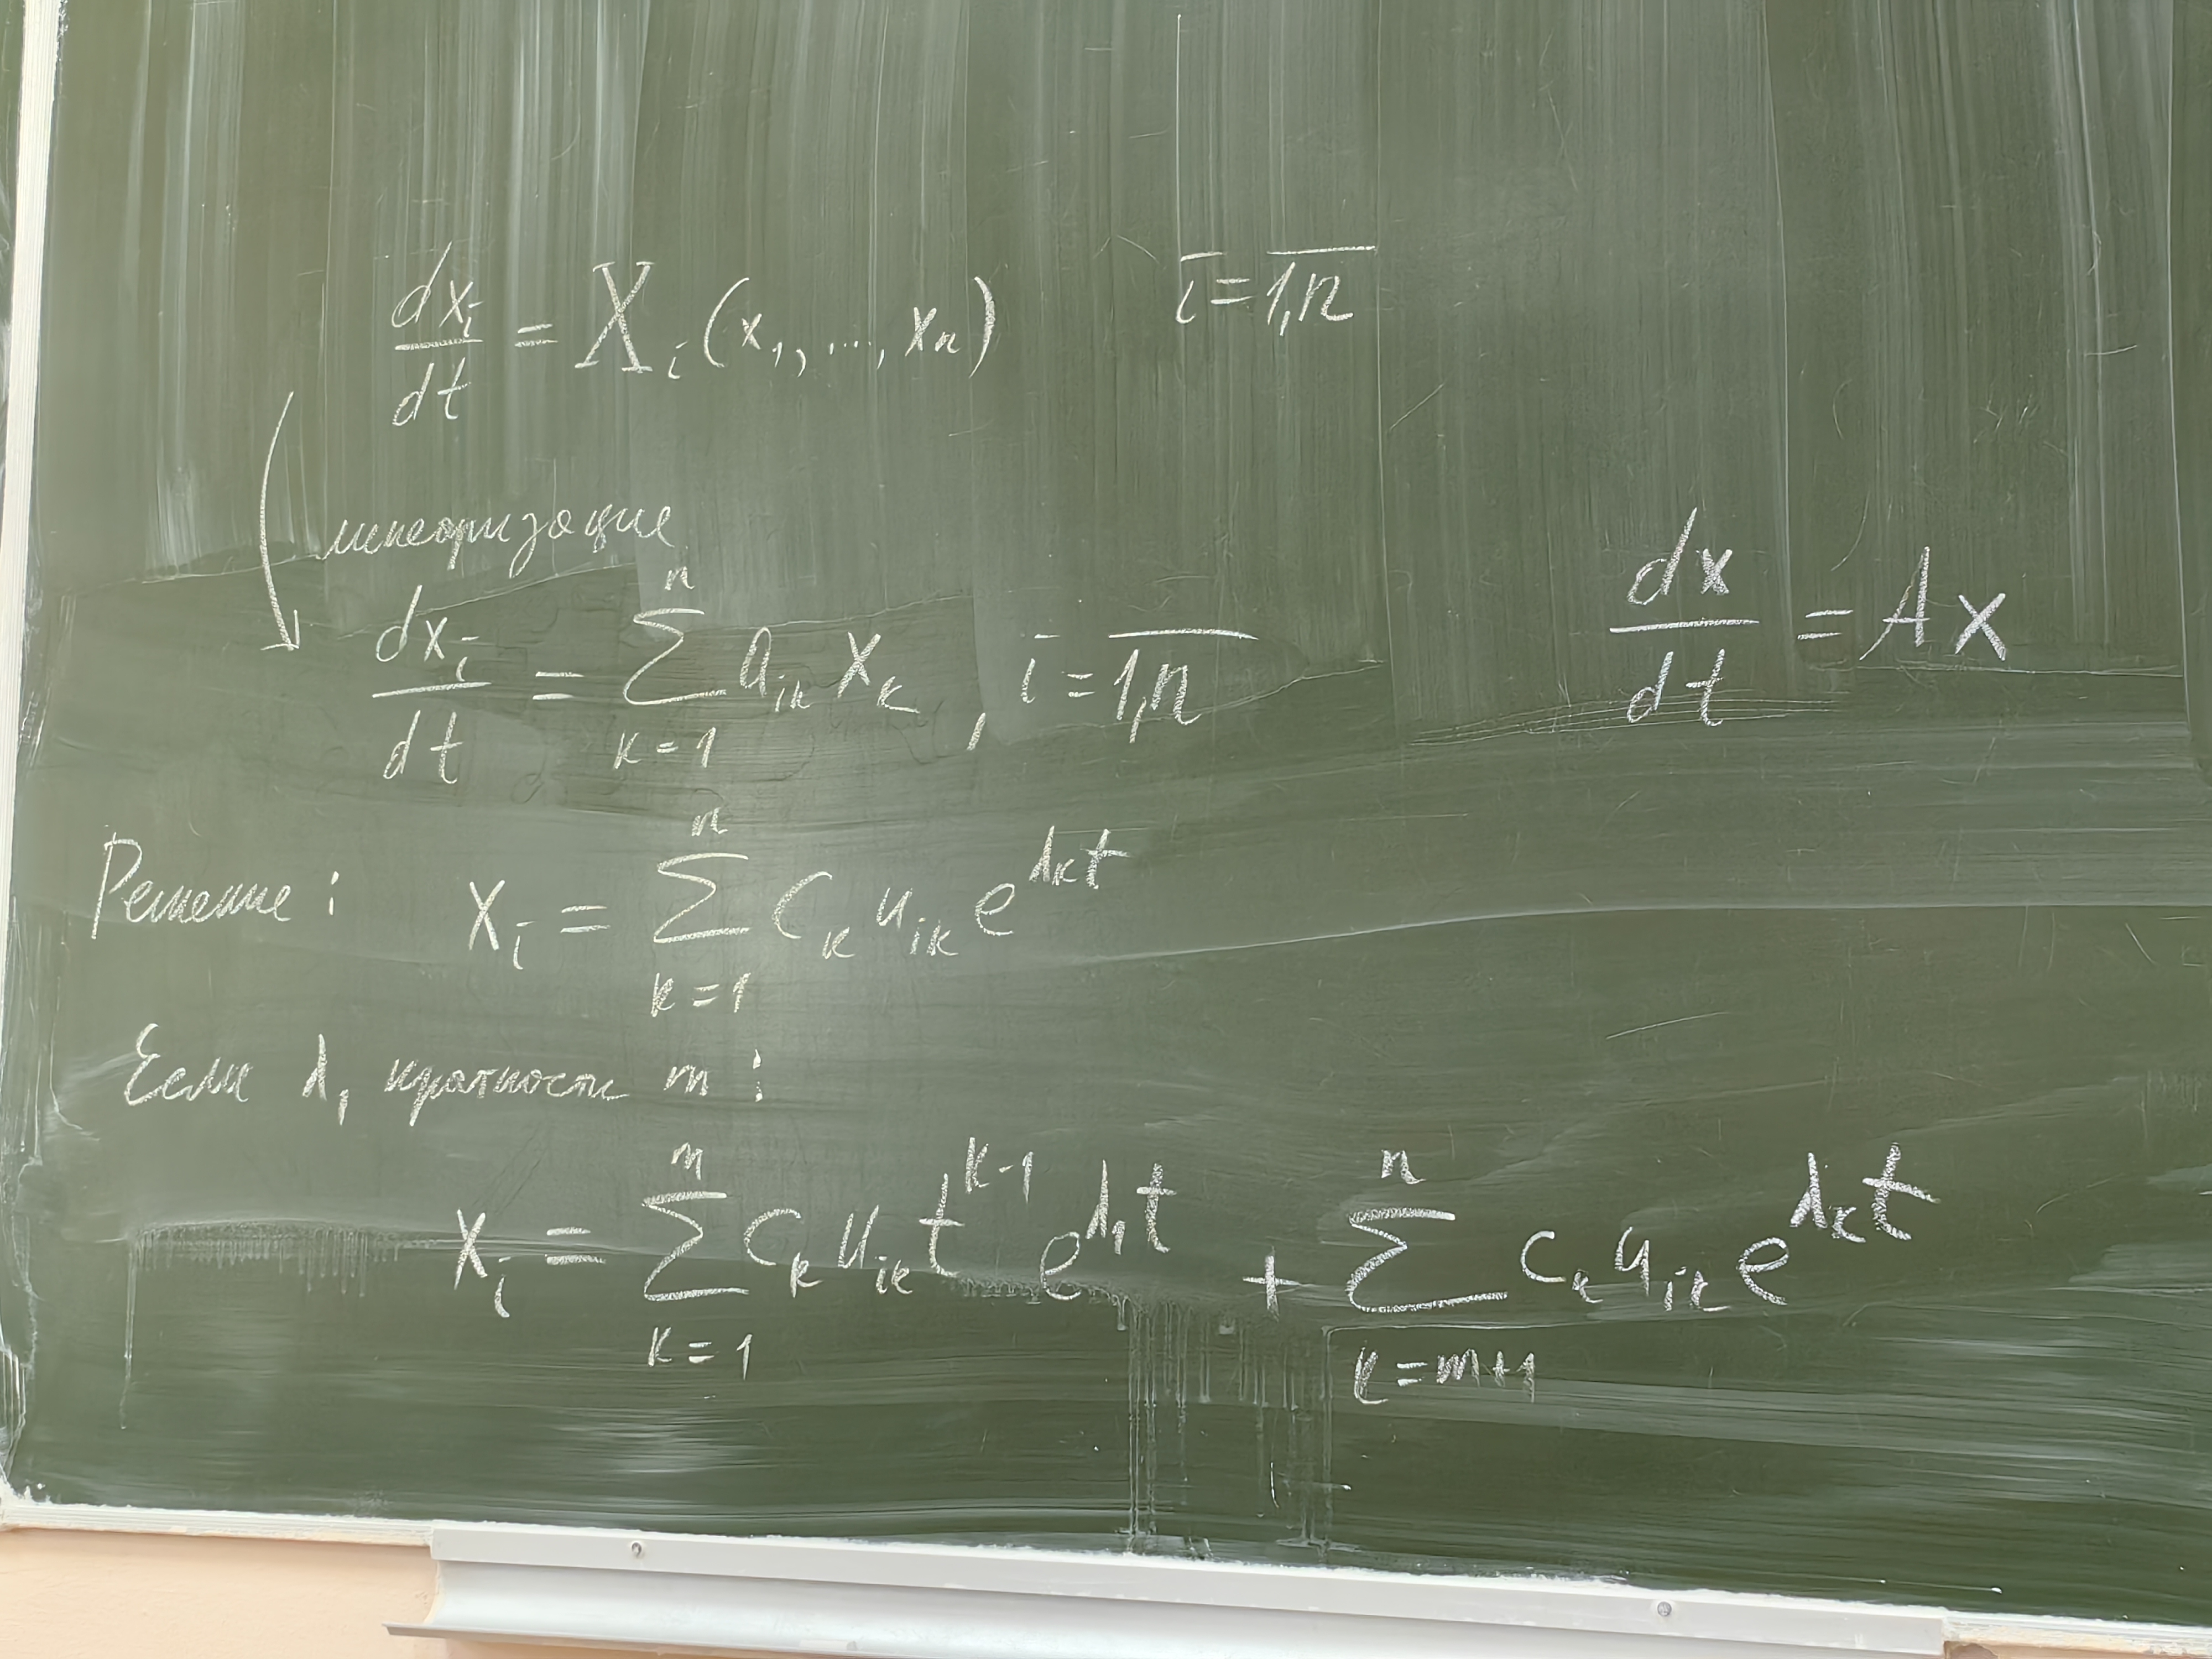 dxᵢ/dt = Xᵢ(x₁, ..., xₙ)    i = 1,n̅
линеаризация
dxᵢ/dt = ∑ₖ₌₁ⁿ aᵢₖ xₖ, i = 1,n̅    dx/dt = Ax
Решение: xᵢ = ∑ₖ₌₁ⁿ cₖ uᵢₖ e^(λₖt)
Если λ₁ кратности m:
xᵢ = ∑ₖ₌₁ᵐ cₖ uᵢₖ t^(k-1) e^(λ₁t) + ∑ₖ₌ₘ₊₁ⁿ cₖ uᵢₖ e^(λₖt)